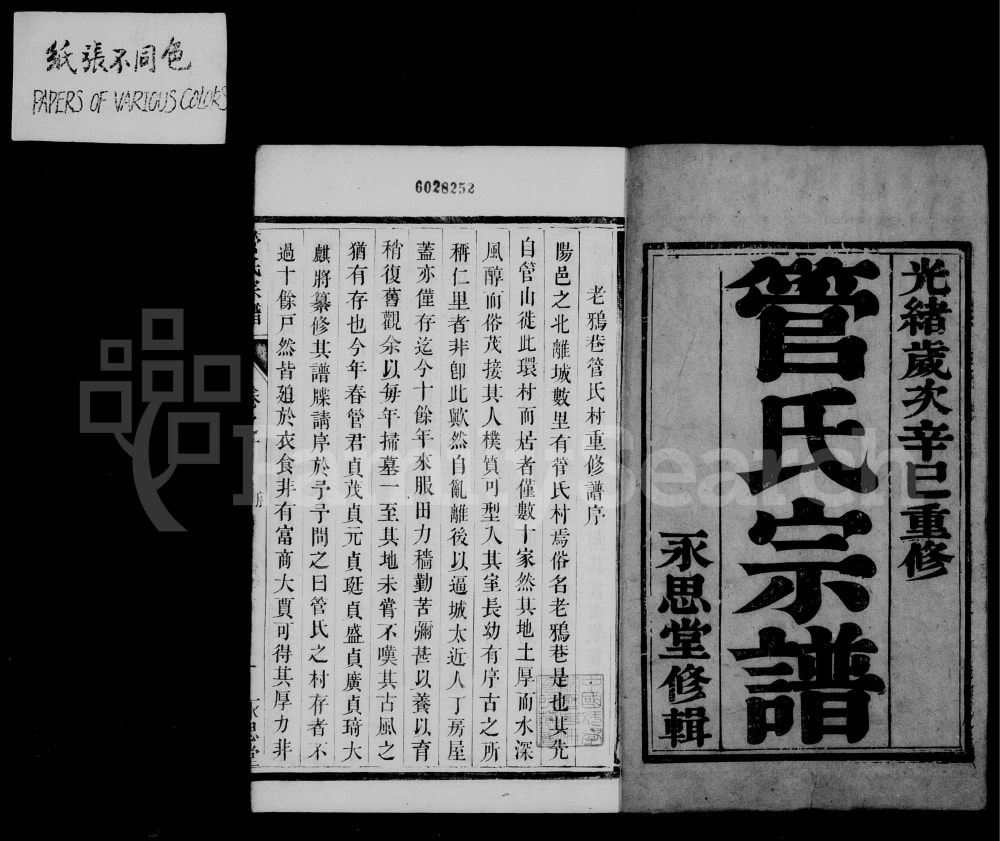 紙張不同色
PAPERS OF VARIOUS COLORS
光緒歲次辛巳重修
管氏宗譜
永思堂修輯
6028252
老鴉巷管氏村重修譜序
陽邑之北離城數里有管氏村焉俗名老鴉巷是也其先
自管山徙此環村而居者僅數十家然其地土厚而水深
風醇而俗茂接其人樸質可型入其室長幼有序古之所
稱仁里者非卽此歟然自亂離後以逼城太近人丁房屋
蓋亦僅存迄今十餘年來服田力穡勤苦彌甚以養以育
稍復舊觀余以每年掃墓一至其地未嘗不嘆其古風之
猶有存也今年春管君貞茂貞元貞珽貞盛貞廣貞琦大
麒將纂修其譜牒請序於予予問之曰管氏之村存者不
過十餘戸然皆廹於衣食非有富商大賈可得其厚力非
管氏宗譜
永思堂
FamilySearch